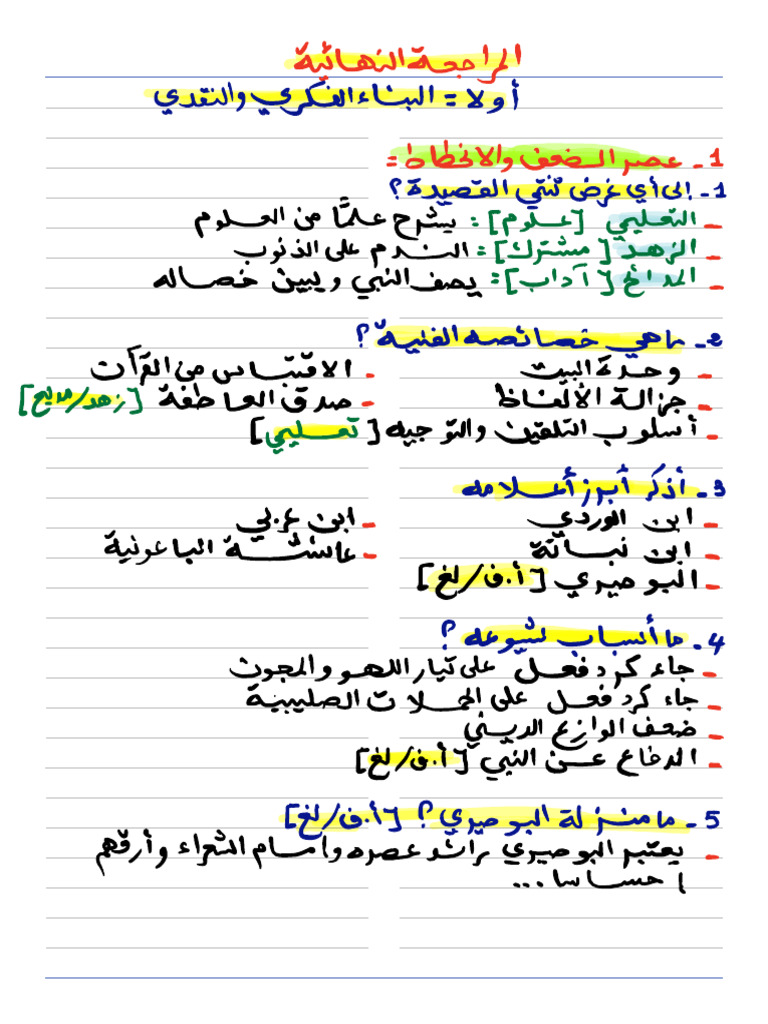 المراجعة النهائية
أولا = البناء الفكري والنقدي
1 - عصر الضعف والانحطاط =
1 - إلى أي غرض تنتمي القصيدة؟
- التعليمي [علوم]: يشرح علمًا من العلوم
- الزهد [مشترك]: الندم على الذنوب
- المدائح [آداب]: يصف النبي ويبين خصاله
2 - ماهي خصائصه الفنية؟
- وحدة البيت - الاقتباس من القرآن
- جزالة الألفاظ - صدق العاطفة [زهد/مديح]
- أسلوب التلقين والتوجيه [تعليمي]
3 - أذكر أبرز أعلامه
- ابن الوردي - ابن عربي
- ابن نباتة - عائشة الباعونية
- البوصيري [أ.ف/لغ]
4 - ما أسباب شيوعه؟
- جاء كرد فعل على تيار اللهو والمجون
- جاء كرد فعل على الحملات الصليبية
- ضعف الوازع الديني
- الدفاع عن النبي [أ.ف/لغ]
5 - ما منزلة البوصيري؟ [أ.ف/لغ]
- يعتبر البوصيري رائد عصره وامام الشعراء وأرقهم
احساسا...